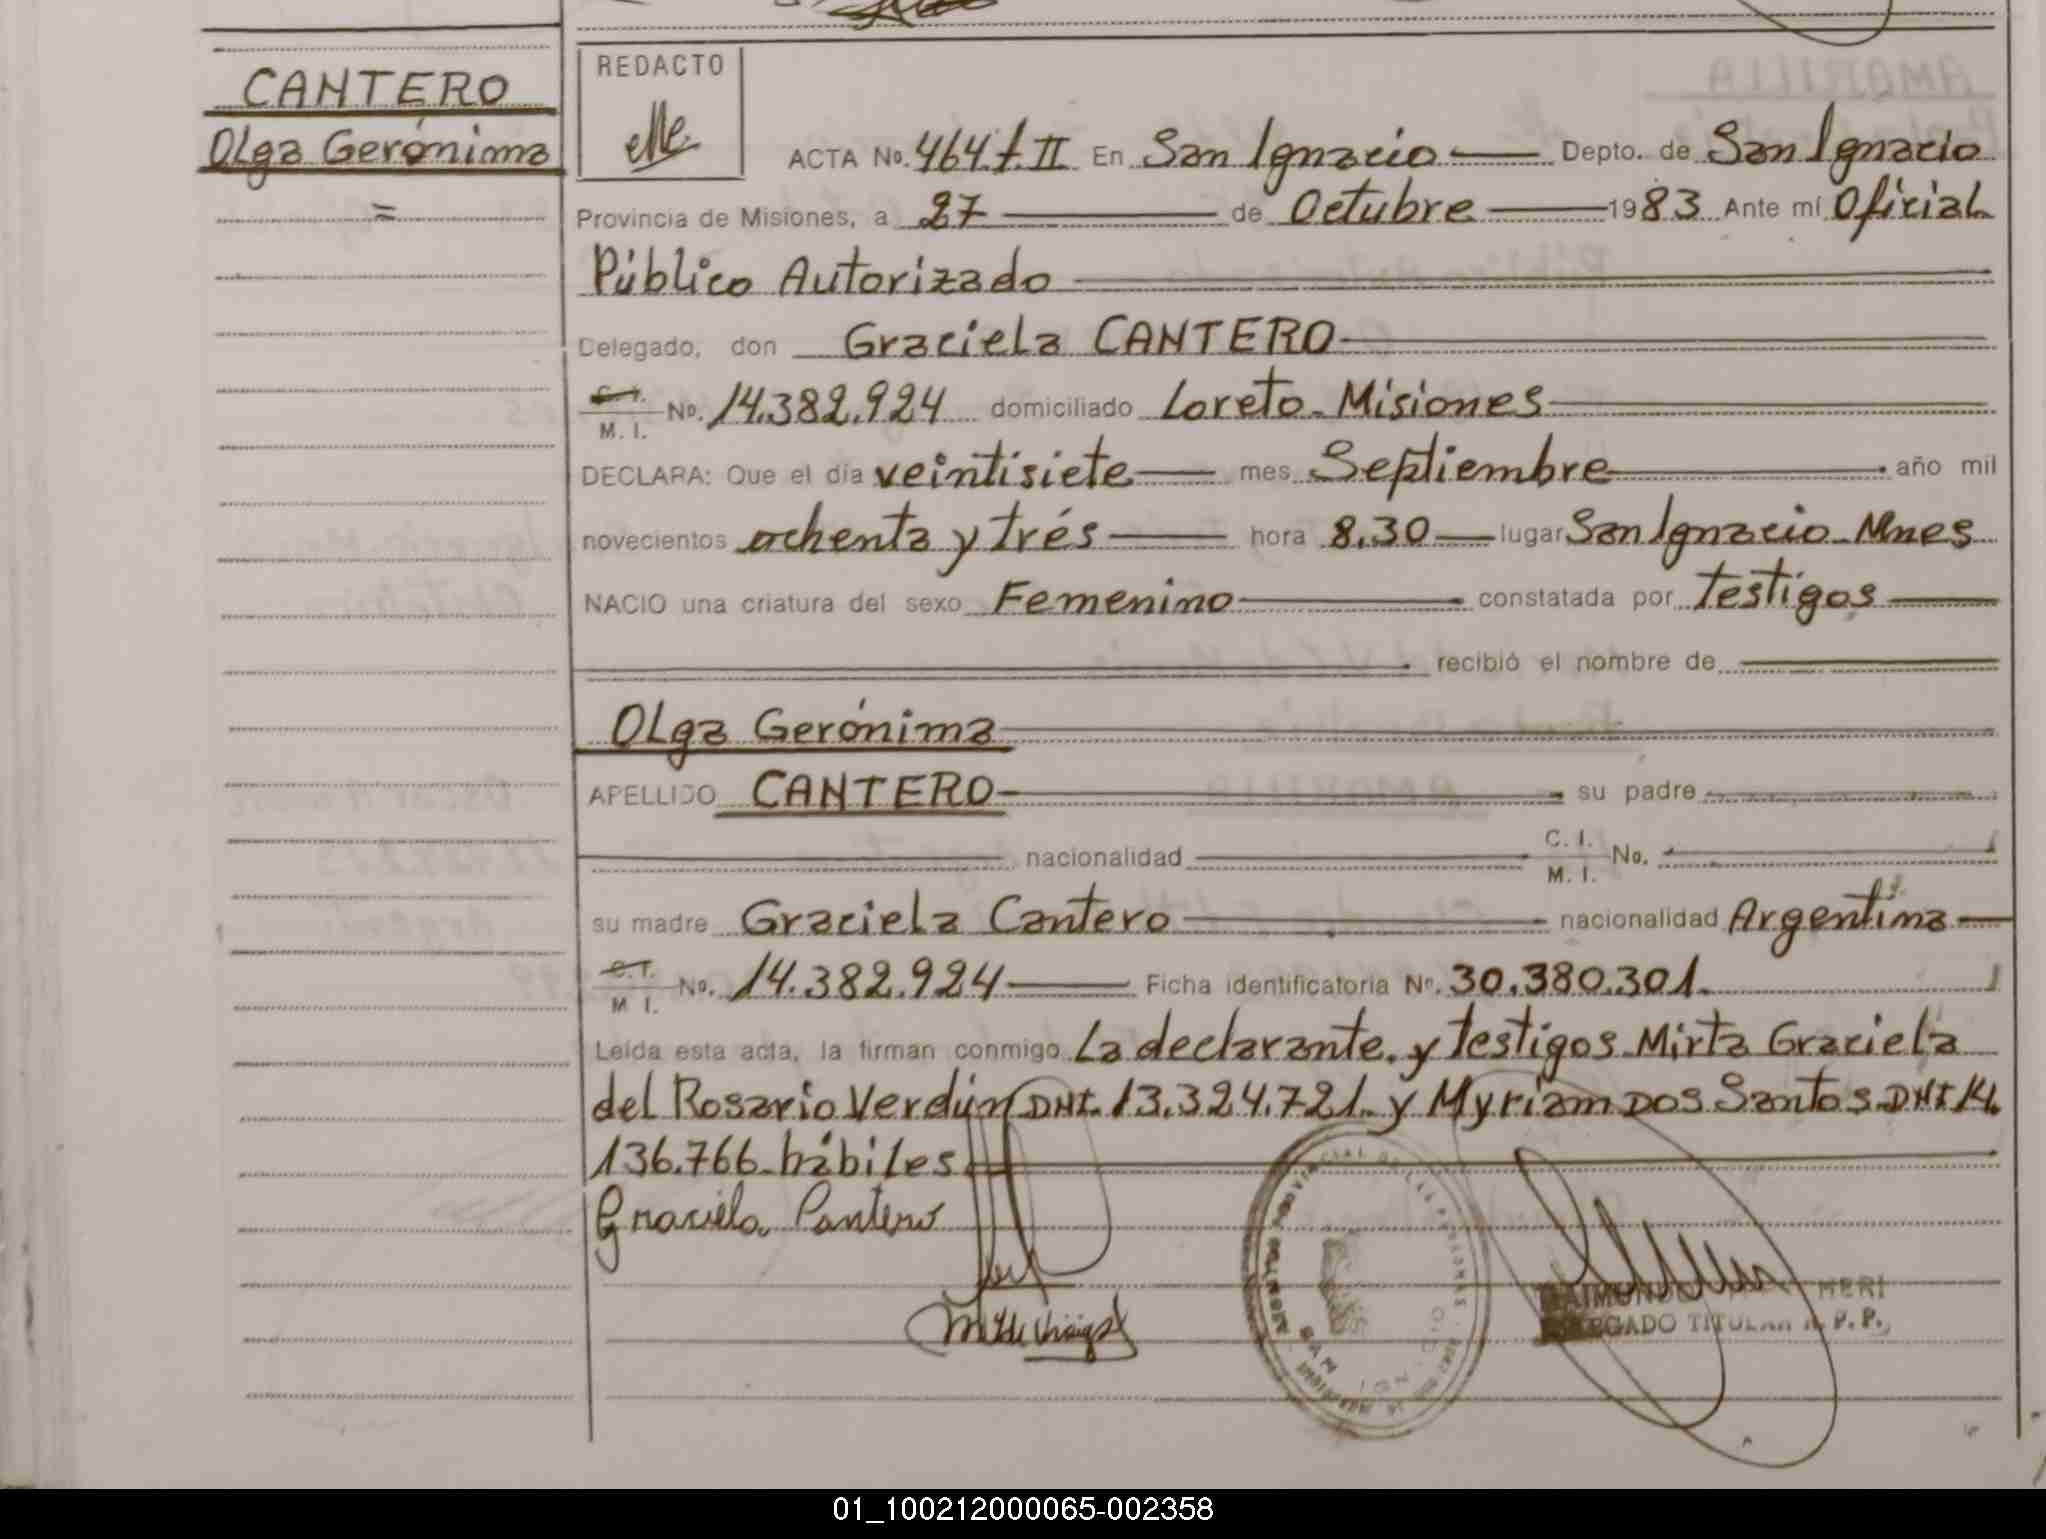 CANTERO
Olga Gerónima
=
REDACTO
ACTA No. 464 t. II En San Ignacio Depto. de San Ignacio
Provincia de Misiones, a 27 de Octubre 1983 Ante mí Oficial
Público Autorizado
Delegado, don Graciela CANTERO
C. I. M. I. No. 14.382.924 domiciliado Loreto Misiones
DECLARA: Que el día veintisiete mes Septiembre año mil
novecientos ochenta y trés hora 8,30 lugar San Ignacio Mnes
NACIO una criatura del sexo Femenino constatada por Testigos
recibió el nombre de
Olga Gerónima
APELLIDO CANTERO su padre
nacionalidad C. I. M. I. No.
su madre Graciela Cantero nacionalidad Argentina
C. I. M. I. No. 14.382.924 Ficha identificatoria Nº. 30.380.301.
Leída esta acta, la firman conmigo La declarante y testigos Mirta Graciela
del Rosario Verdún DNI. 13.324.721 y Myriam Dos Santos DNI 14.
136.766 hábiles
Graciela Cantero
DELEGADO TITULAR R. P. P.
01_100212000065-002358